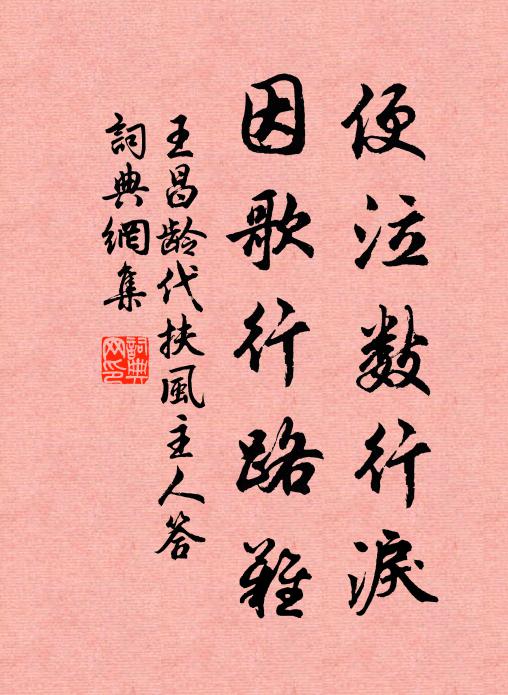 便泣数行淚
因歌行路難
王昌龄代扶風主人答
詞典網集
詞典網印